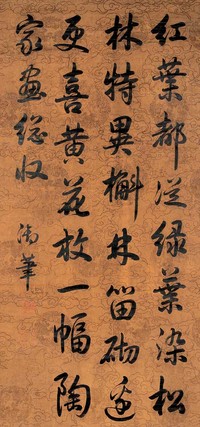 紅葉都從綠葉染松
林特異槲林留砌邊
更喜黄花放一幅陶
家畫総収
御筆